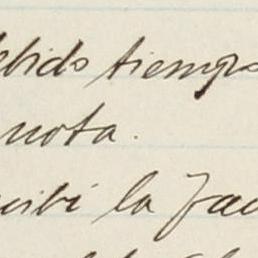 ebido tiempo
nota.
cibí la fac